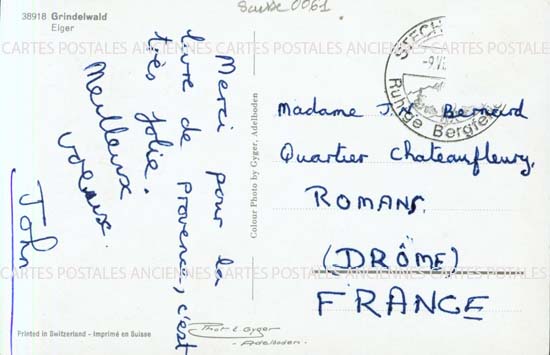 38918 Grindelwald
Eiger
Suisse 0061
CARTES POSTALES ANCIENNES CARTES POSTALES ANCIENNES CARTES POSTALES
Merci pour la
livre de Provence, c'est
très jolie.
Meilleux
voeux.
John
Colour Photo by Gyger, Adelboden
-9.VI
Ruhige Bergfe
Madame J. Bernard
Quartier Chateaufleury,
ROMANS,
(DRÔME)
FRANCE
CARTES POSTALES ANCIENNES CARTES POSTALES ANCIENNES CARTES POSTALES
Printed in Switzerland – Imprimé en Suisse
Gyger
Adelboden